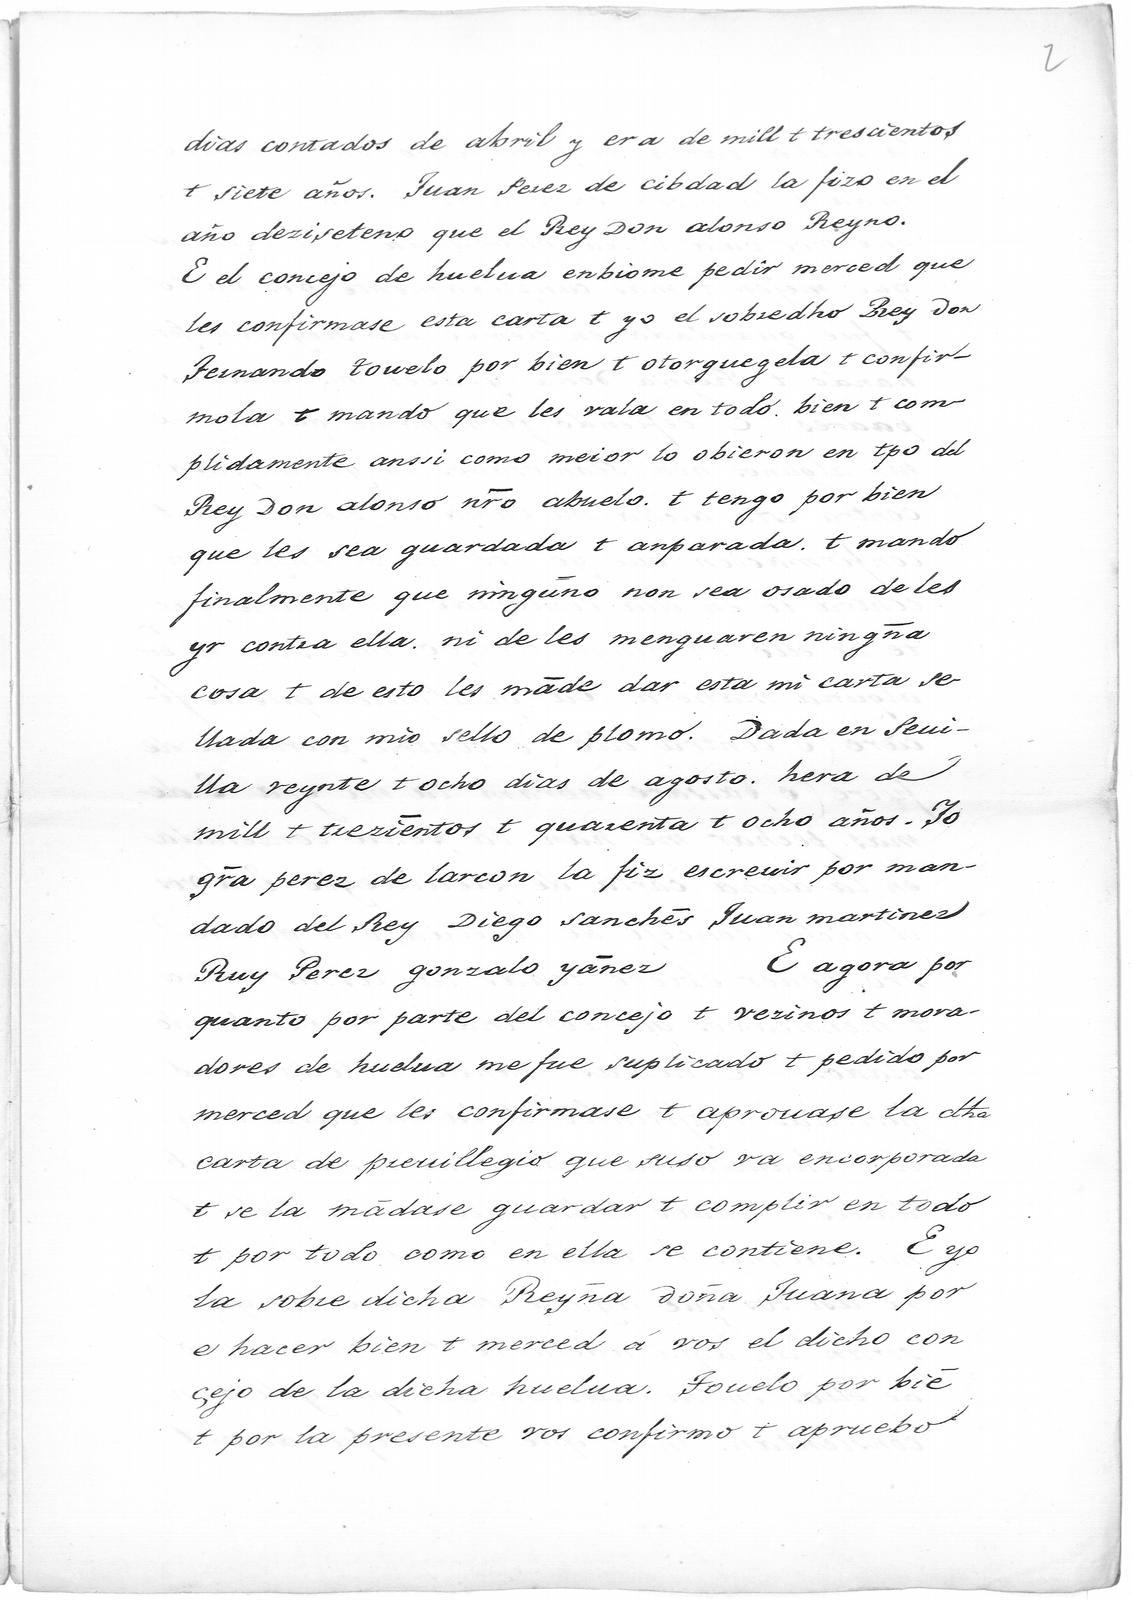 2
dias contados de abril y era de mill t trescientos
t siete años. Juan Perez de cibdad la fizo en el
año deziseteno que el Rey Don alonso Reyno.
E el concejo de huelua enbiome pedir merced que
les confirmase esta carta t yo el sobredho Rey Don
Fernando touelo por bien t otorguegela t confir-
mola t mando que les vala en todo. bien t com-
plidamente anssi como meior lo obieron en tpo del
Rey Don alonso nr̄o abuelo. t tengo por bien
que les sea guardada t anparada. t mando
finalmente que ningūno non sea osado de les
yr contra ella. ni de les menguaren ningn̄a
cosa t de esto les māde dar esta mi carta se-
llada con mio sello de plomo. Dada en Seui-
lla veynte t ocho dias de agosto. hera de
mill t trezientos t quarenta t ocho años. Yo
gr̄a perez de larcon la fiz escreuir por man-
dado del Rey Diego sanchēs Juan martinez
Ruy Perez gonzalo yāñez E agora por
quanto por parte del concejo t vezinos t mora-
dores de huelua me fue suplicado t pedido por
merced que les confirmase t aprouase la dha
carta de preuillegio que suso va encorporada
t se la mādase guardar t complir en todo
t por todo como en ella se contiene. E yo
la sobre dicha Reyña doña Juana por
e hacer bien t merced á vos el dicho con
çejo de la dicha huelua. Touelo por biē
t por la presente vos confirmo t apruebo